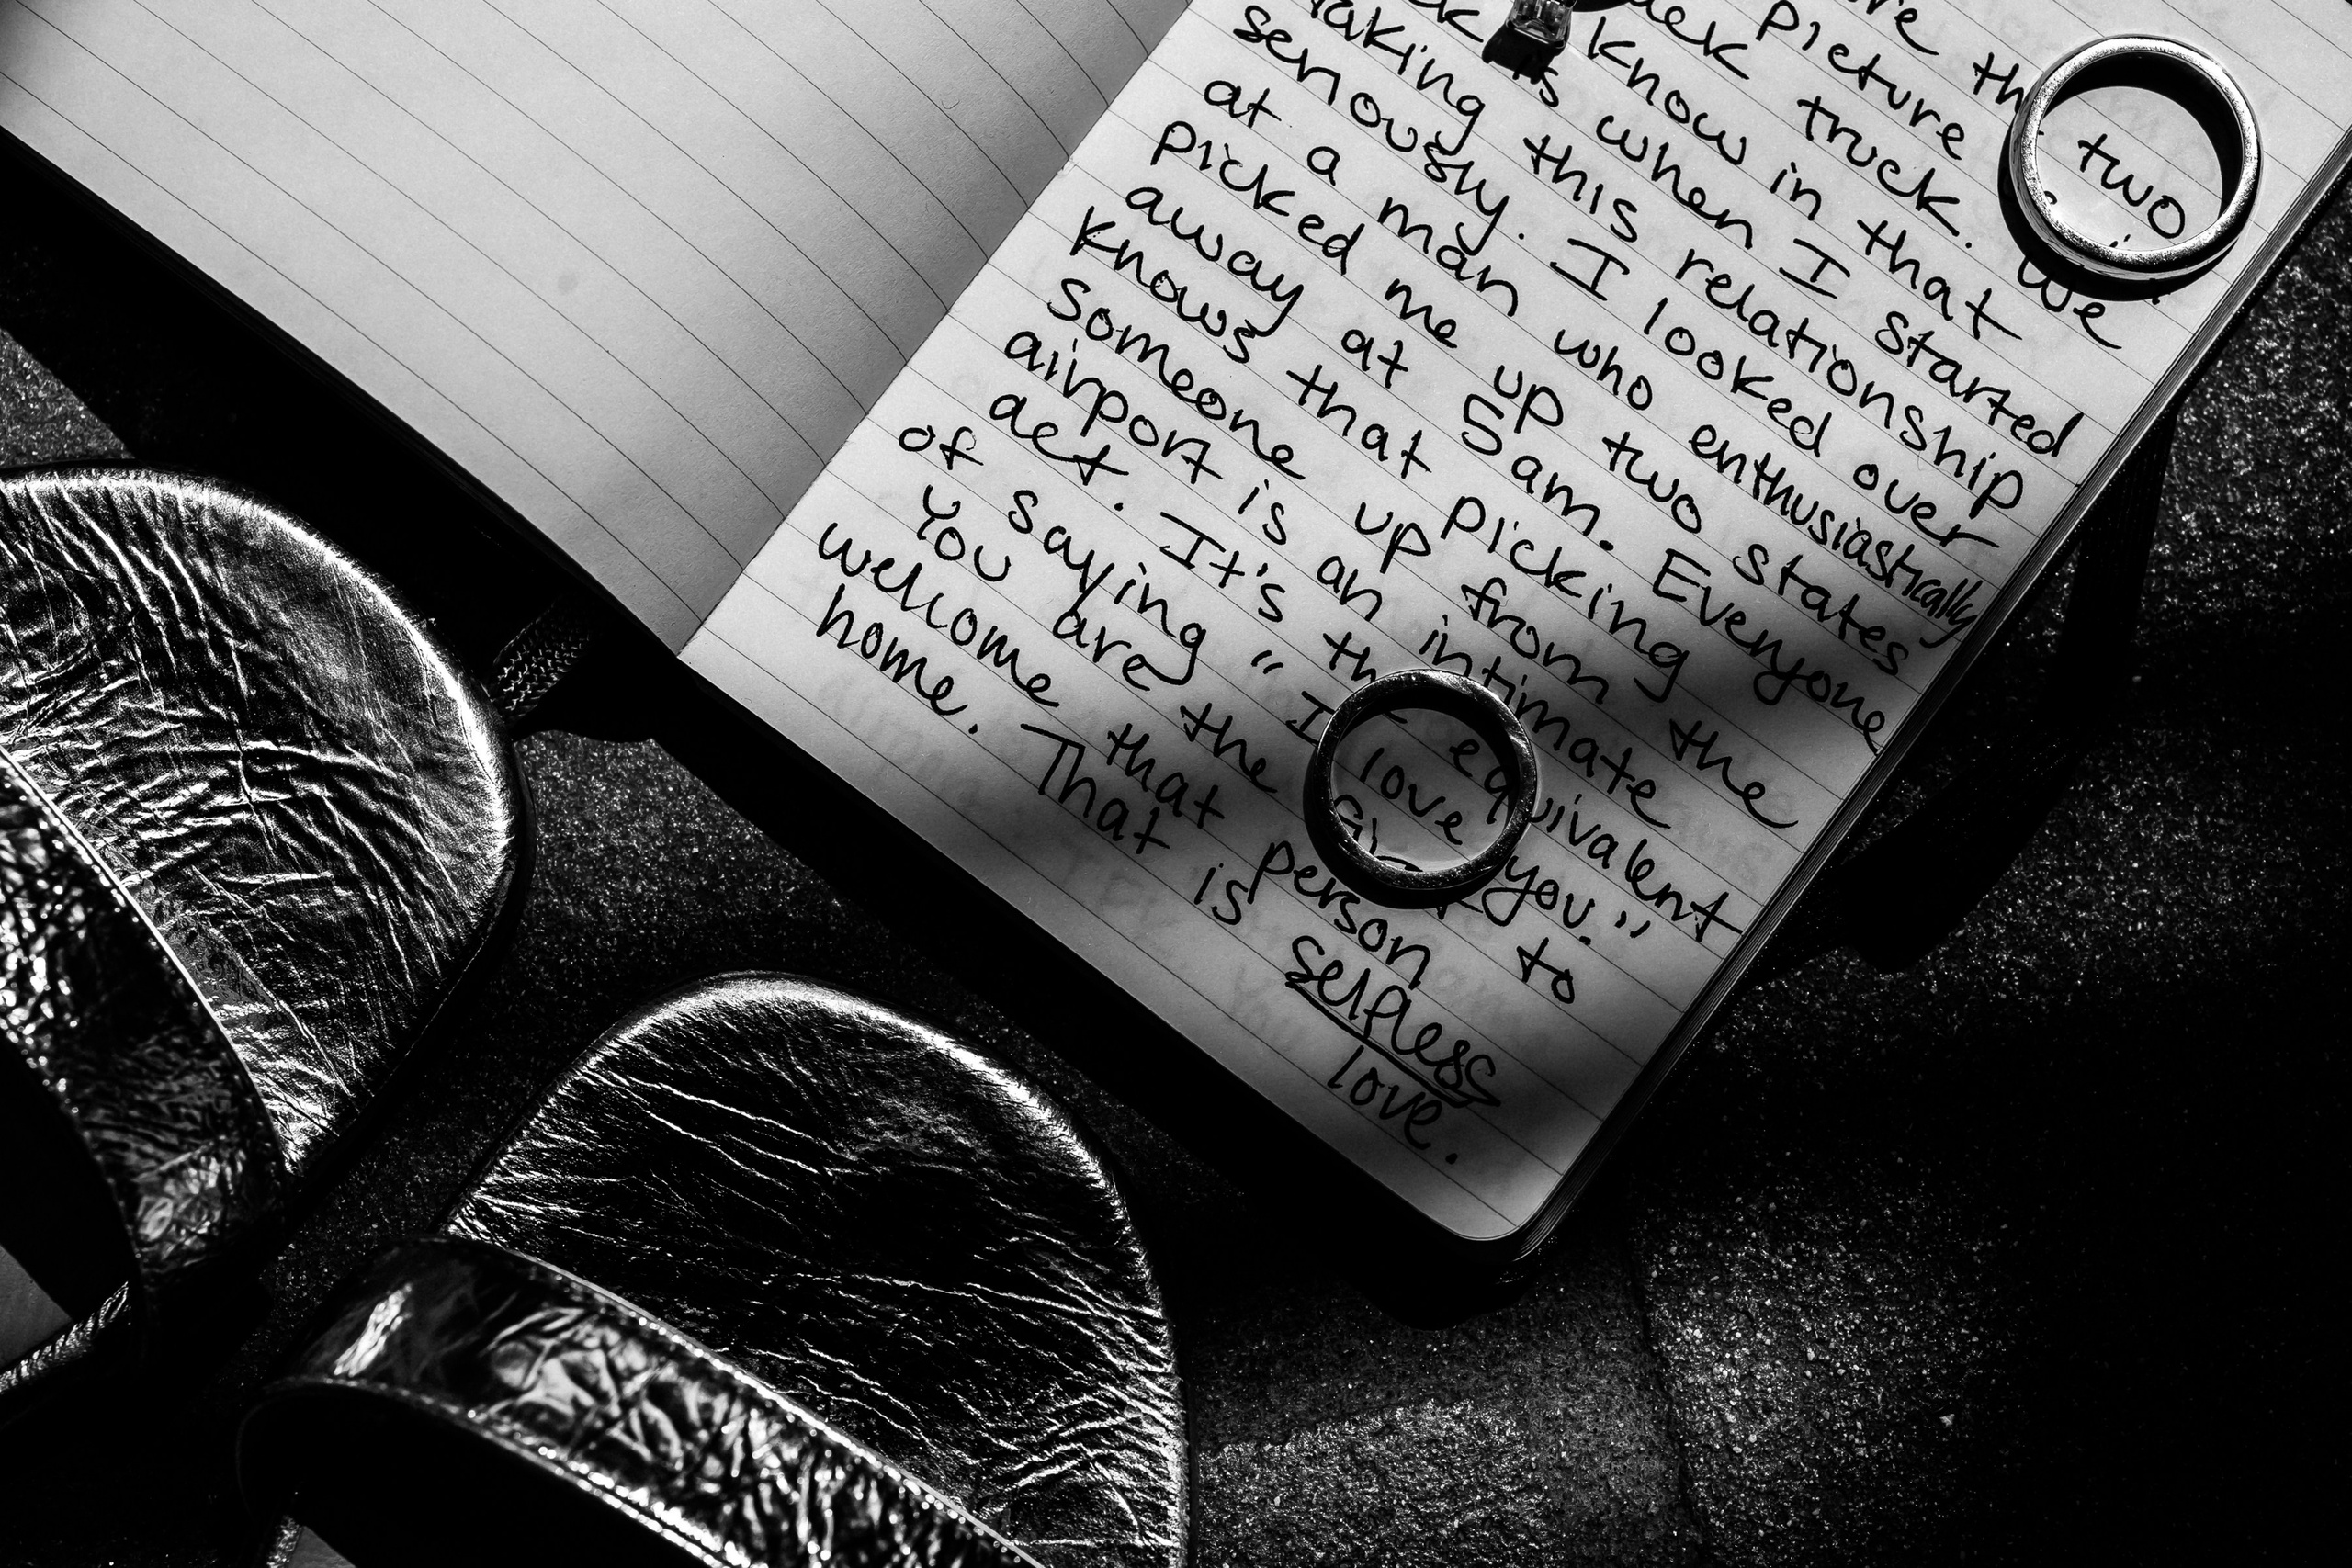 two
picture
truck. We
know in that
is when I started
taking this relationship
seriously. I looked over
at a man who enthusiastically
picked me up two states
away at 5am. Everyone
knows that picking
someone up from the
airport is an intimate
act. It's the equivalent
of saying "I love you."
You are the first to
welcome that person
home. That is selfless
love.